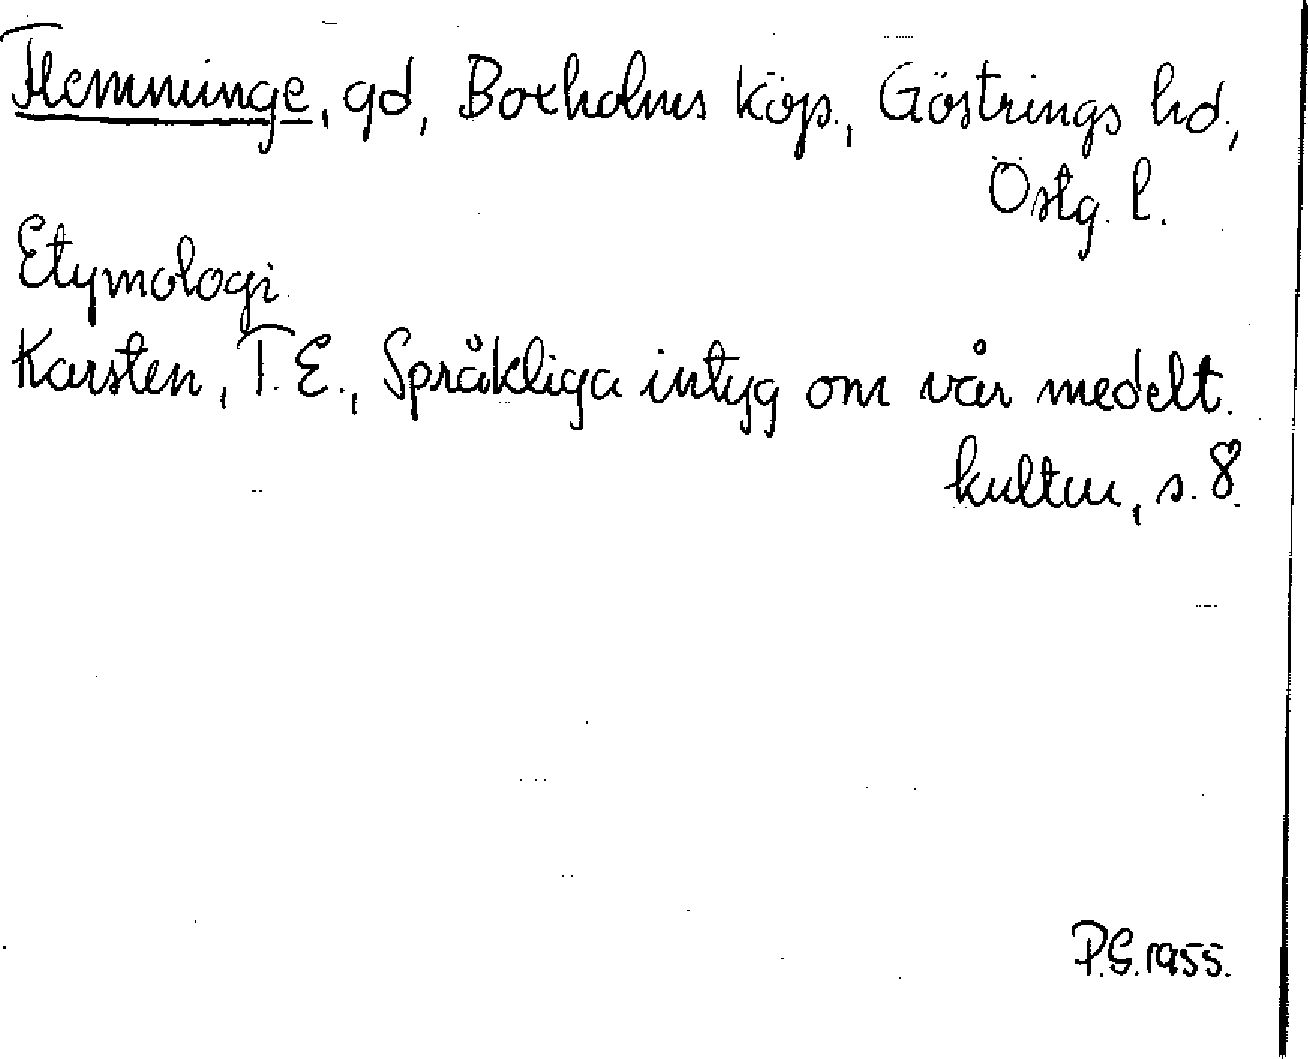 Flemminge, gd, Boxholms köp., Göstrings hd.,
Östg. l.
Etymologi
Karsten, T. E., Språkliga intyg om vår medelt.
kultur, s. 8.
P.G. 1955.